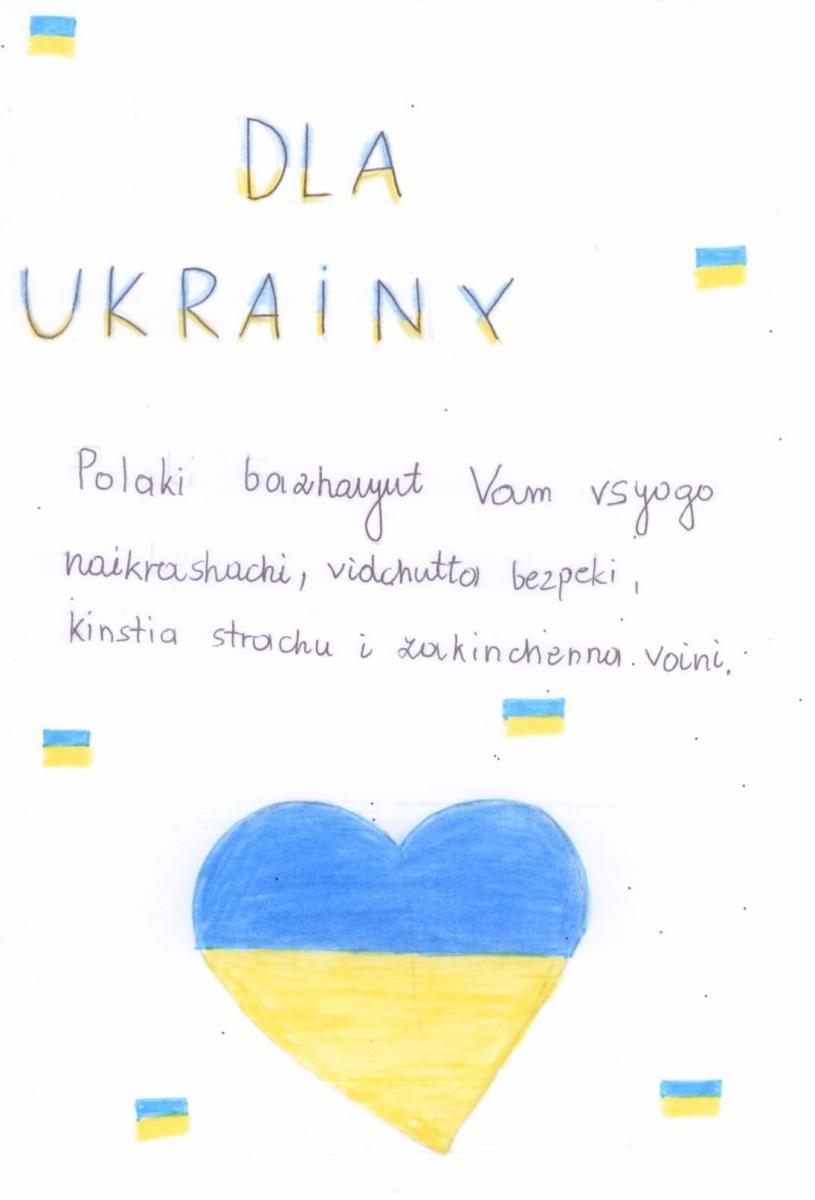 DLA
UKRAiNY
Polaki bazhayut Vam vsyogo
naikrashachi, vidchutta bezpeki,
kinstia strachu i zakinchenna. voini.